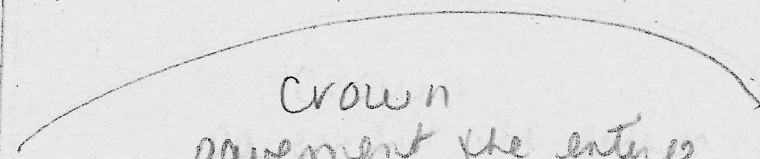 Crown
pavement the entire